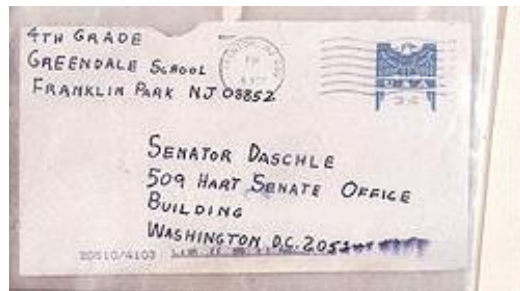 4TH GRADE
GREENDALE SCHOOL
FRANKLIN PARK NJ 08852
USA
SENATOR DASCHLE
509 HART SENATE OFFICE
BUILDING
WASHINGTON D.C.
20510/4103